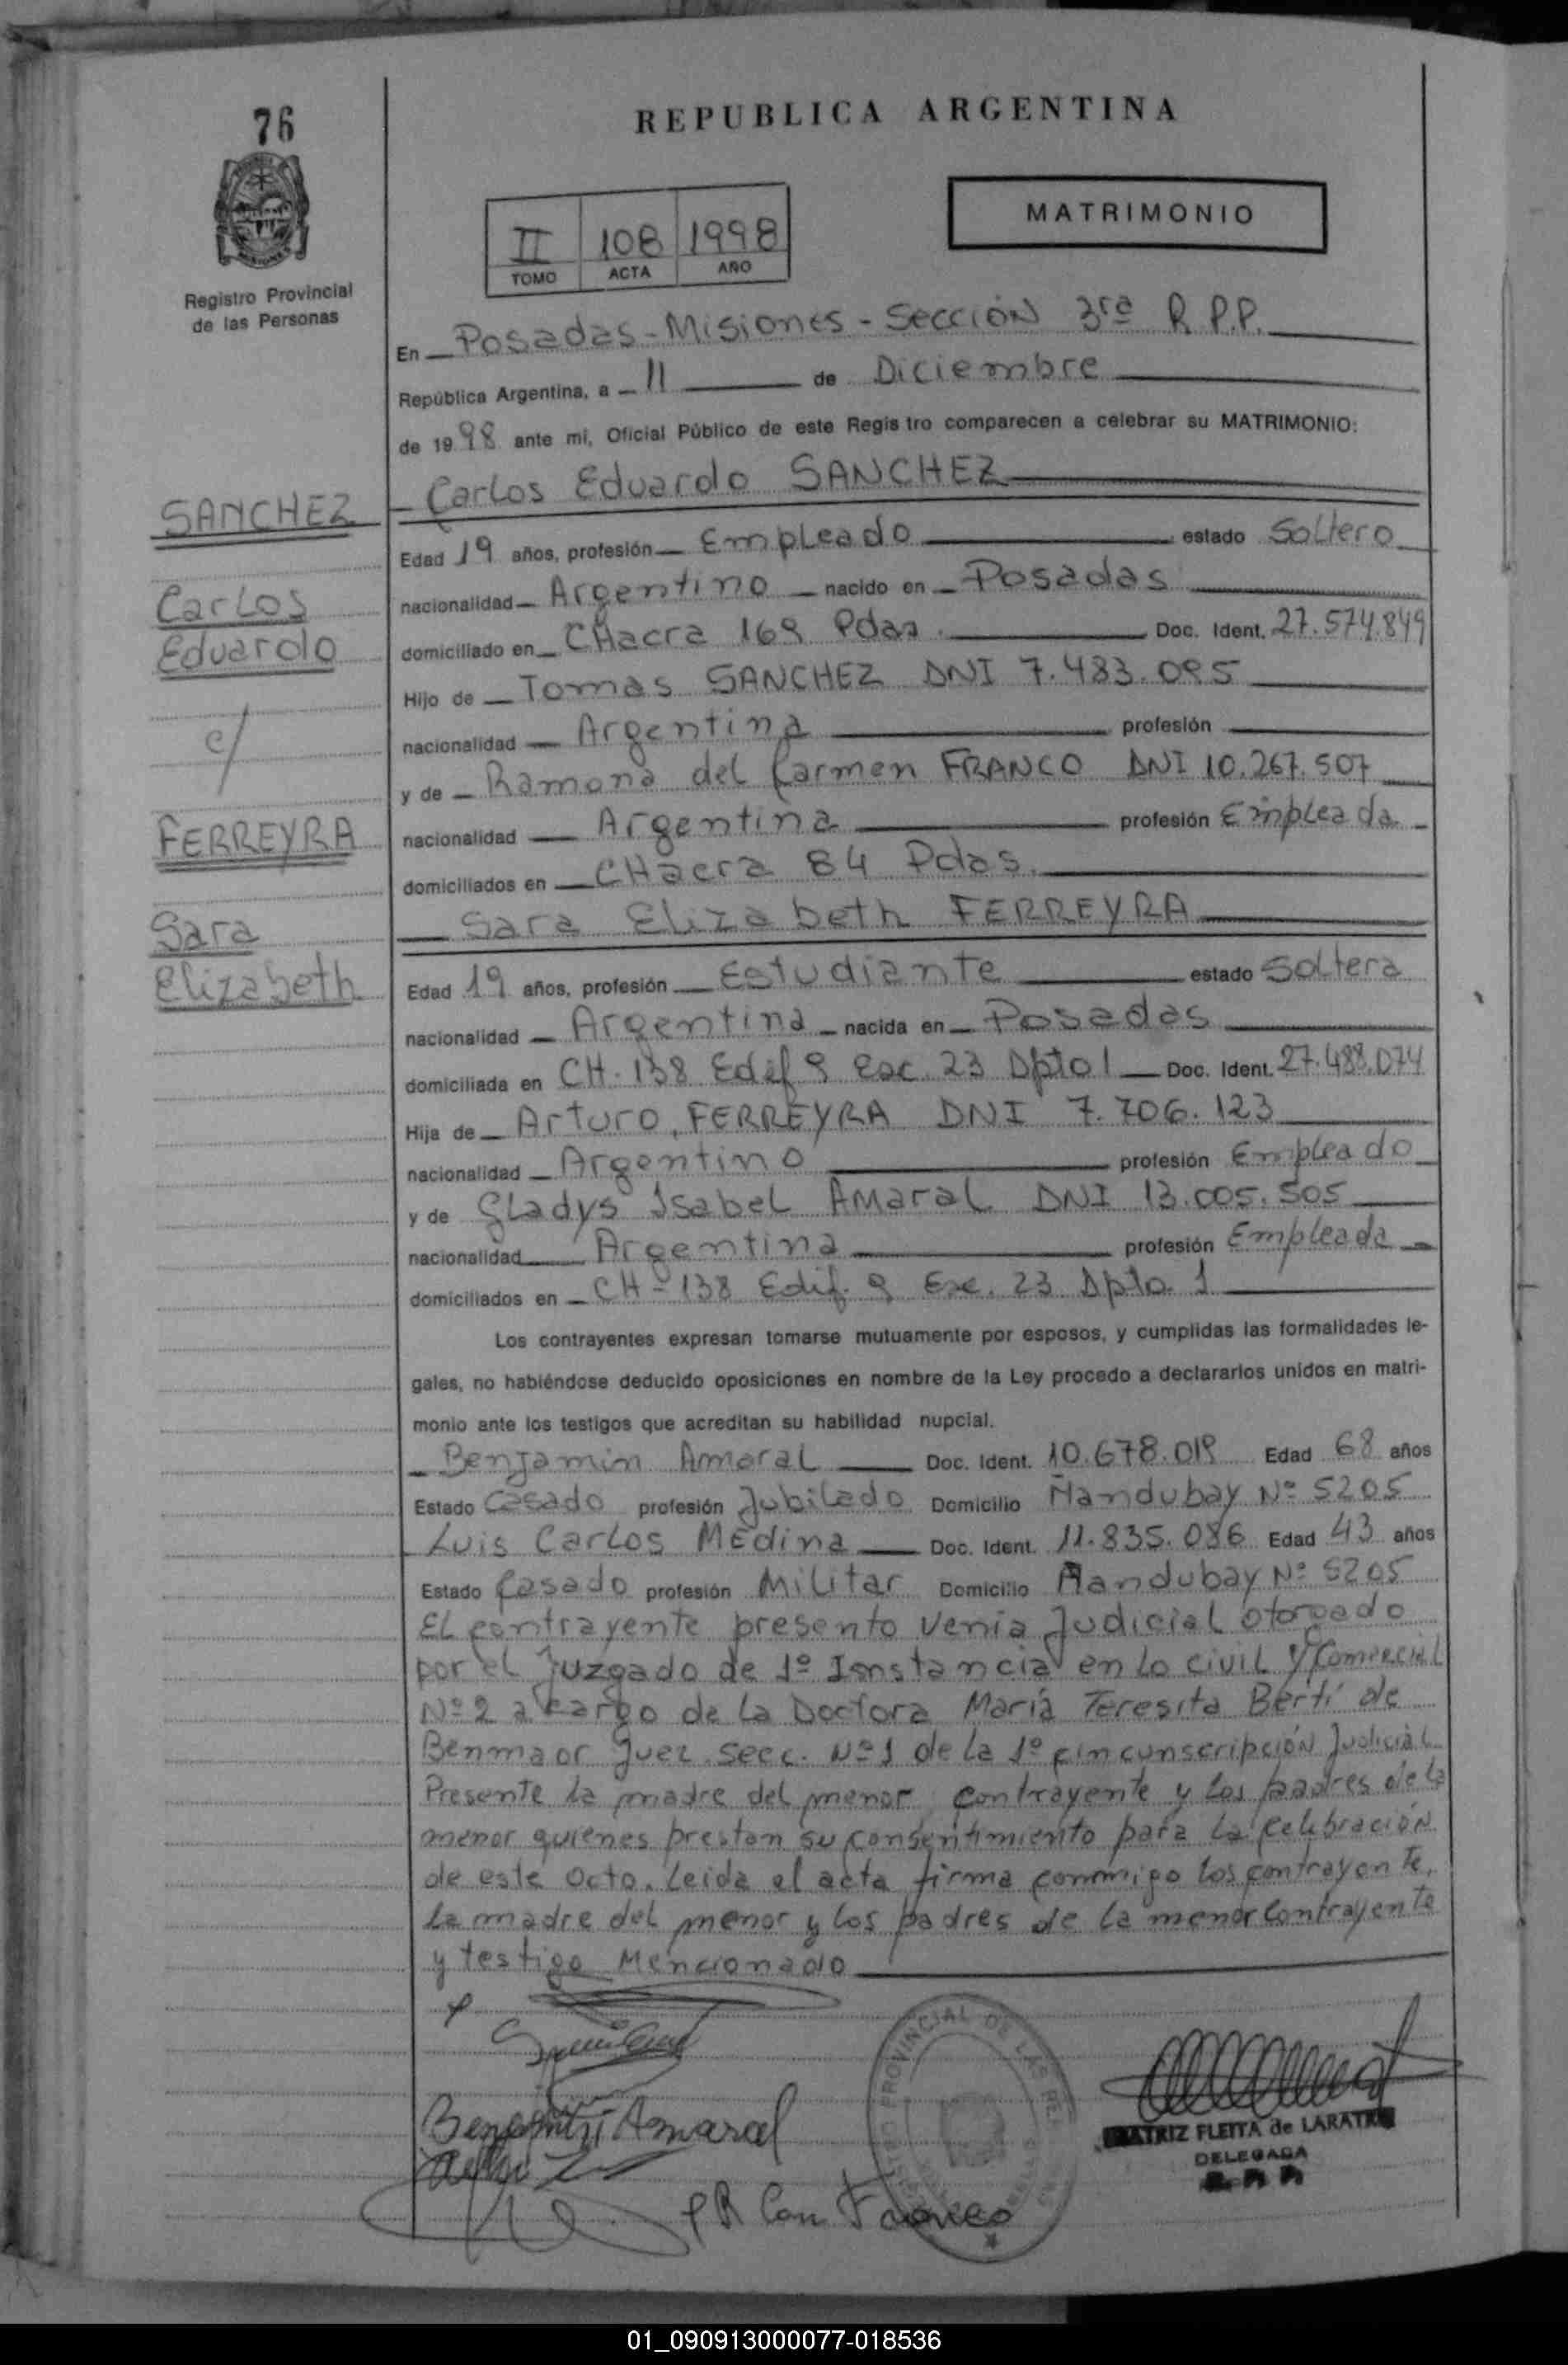 76
REPUBLICA ARGENTINA
MATRIMONIO
II 108 1998
TOMO ACTA AÑO
Registro Provincial
de las Personas
En Posadas - Misiones - Sección 3ra R.P.P.
República Argentina, a 11 de Diciembre
de 1998 ante mi, Oficial Público de este Regis tro comparecen a celebrar su MATRIMONIO:
Carlos Eduardo SANCHEZ
SANCHEZ
Carlos
Eduardo
c/
FERREYRA
Sara
Elizabeth
Edad 19 años, profesión Empleado estado Soltero
nacionalidad Argentino nacido en Posadas
domiciliado en CHacra 169 Pdas. Doc. Ident. 27.574.849
Hijo de Tomas SANCHEZ DNI 7.483.095
nacionalidad Argentina profesión
y de Ramona del Carmen FRANCO DNI 10.267.507
nacionalidad Argentina profesión Empleada
domiciliados en CHacra 84 Pdas.
Sara Elizabeth FERREYRA
Edad 19 años, profesión Estudiante estado Soltera
nacionalidad Argentina nacida en Posadas
domiciliada en CH. 138 Edif 9 Esc. 23 Dpto 1 Doc. Ident. 27.488.074
Hija de Arturo, FERREYRA DNI 7.706.123
nacionalidad Argentino profesión Empleado
y de Gladys Isabel Amaral DNI 13.005.505
nacionalidad Argentina profesión Empleada
domiciliados en CH - 138 Edif. 9 Esc. 23 Dpto. 1
Los contrayentes expresan tomarse mutuamente por esposos, y cumplidas las formalidades le-
gales, no habiéndose deducido oposiciones en nombre de la Ley procedo a declararlos unidos en matri-
monio ante los testigos que acreditan su habilidad nupcial.
Benjamin Amaral Doc. Ident. 10.678.019 Edad 68 años
Estado Casado profesión Jubilado Domicilio Ñandubay Nº 5205
Luis Carlos MEdina Doc. Ident. 11.835.086 Edad 43 años
Estado Casado profesión Militar Domicilio Ñandubay Nº 5205
El contrayente presento venia Judicial otorgado
por el Juzgado de 1º Instancia en lo civil y Comercial
Nº 2 a cargo de la Doctora María Teresita Berti de
Benmaor Juez. Secc. Nº 1 de la 1º cincunscripción Judicial
Presente la madre del menor contrayente y los padres de la
menor quienes prestan su consentimiento para la celebración
de este acto. Leida el acta firma conmigo los contrayente,
la madre del menor y los padres de la menor contrayente
y testigo Mencionado
Amaral
Franco
PROVINCIAL DE LAS
FLEITA de LARATRO
DELEGADA
01_090913000077-018536